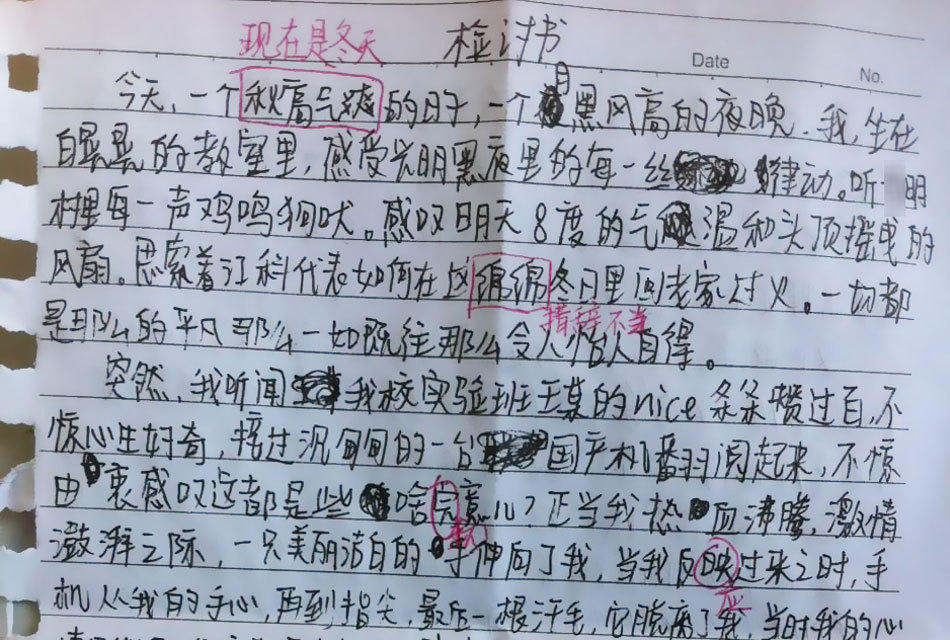 现在是冬天 检讨书
Date
No.
今天,一个秋高气爽的日子,一个月黑风高的夜晚.我,坐在
白晃晃的教室里,感受光明黑夜里的每一丝律动。听 明
村里每一声鸡鸣狗吠。感叹明天8度的气温和头顶摇曳的
风扇。思索着江科代表如何在这绵绵冬日里回老家过义。一切都
措辞不当
是那么的平凡那么一如既往那么令人怡人自得。
突然,我听闻我校实验班王某的nice条条赞过百,不
惊心生好奇,接过沉甸甸的一台国产机番羽阅起来,不惊
由衷感叹这都是些啥完意儿?正当我热血沸腾,激情
澎湃之际,一只美丽洁白的手伸向了我,当我反映过来之时,手
应
机从我的手心,再到指尖,最后一根汗毛,它脱离了我,当时我的心